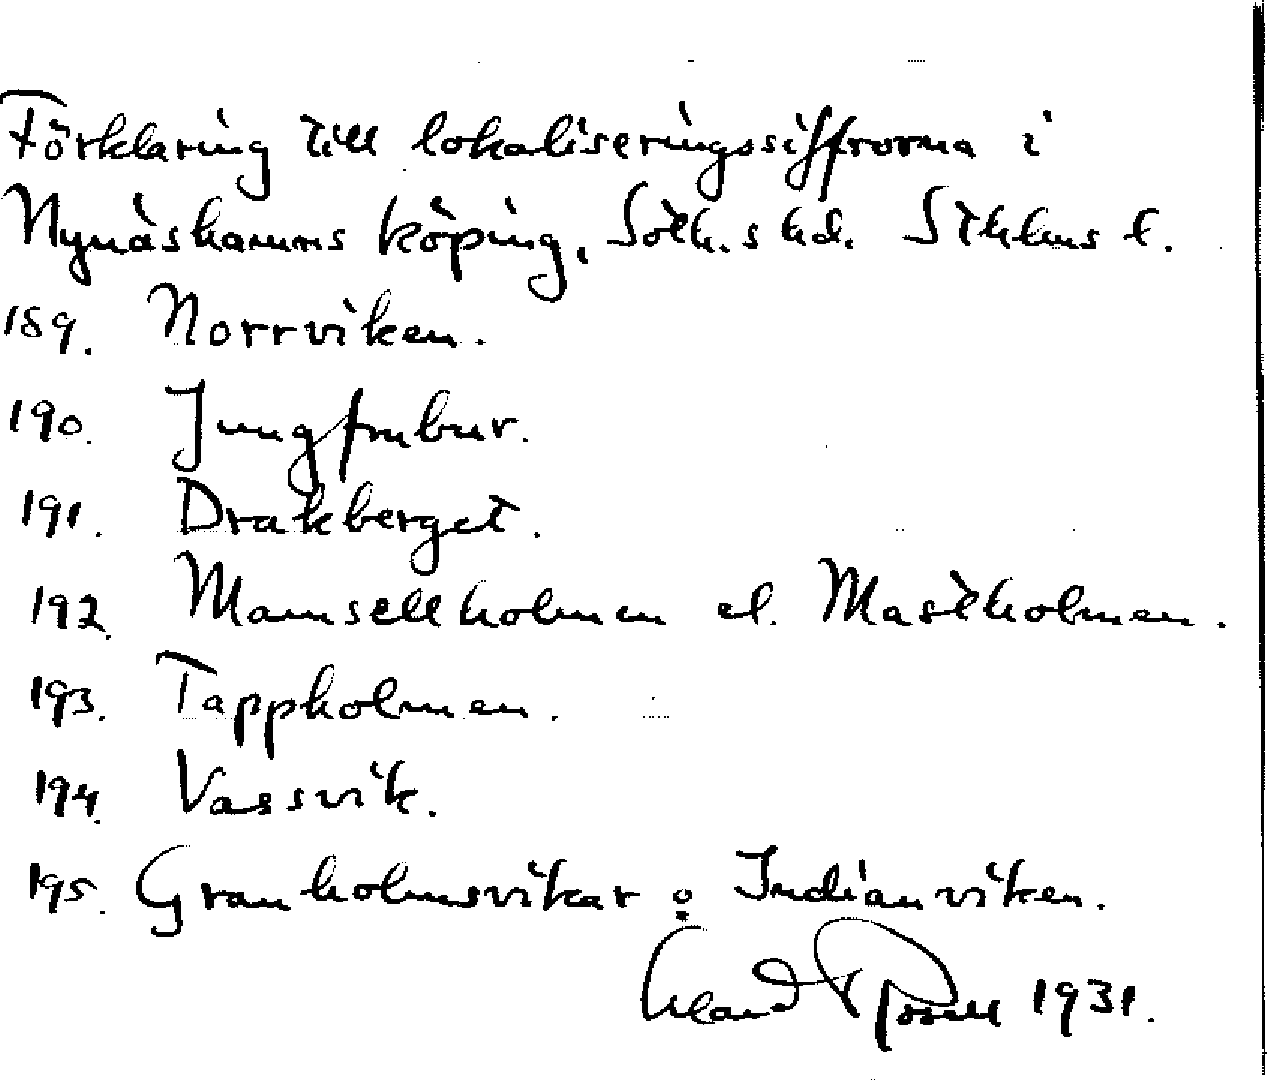 Förklaring till lokaliseringssiffrorna i
Nynäshamns köping, Soth.s hd. Sthlms l.
189. Norrviken.
190. Jungfrubur.
191. Drakberget.
192. Mamsellholmen el. Mastholmen.
193. Tappholmen.
194. Vassvik.
195. Granholmsvikar o Indianviken.
1931.